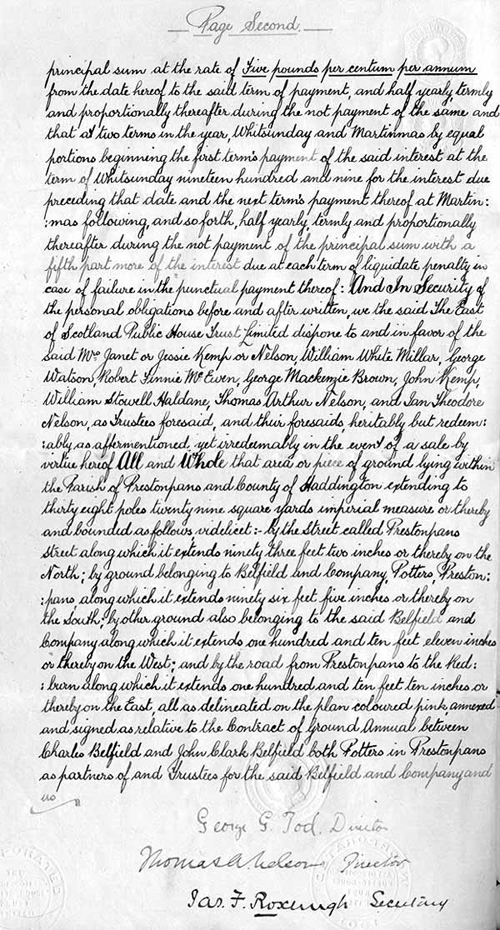 Page Second.
principal sum at the rate of Five pounds per centum per annum
from the date hereof to the said term of payment, and half yearly, termly
and proportionally thereafter during the not payment of the same and
that at two terms in the year, Whitsunday and Martinmas by equal
portions beginning the first term's payment of the said interest at the
term of Whitsunday nineteen hundred and nine for the interest due
preceding that date and the next term's payment thereof at Martin:
:mas following, and so forth, half yearly, termly and proportionally
thereafter during the not payment of the principal sum with a
fifth part more of the interest due at each term of liquidate penalty in
case of failure in the punctual payment thereof: And In Security of
the personal obligations before and after written, we the said The East
of Scotland Public House Trust Limited dispone to and in favor of the
said Mrs Janet or Jessie Kemp or Nelson, William White Millar, George
Watson, Robert Finnie McEwen, George Mackenzie Brown, John Kemp,
William Stowell Haldane, Thomas Arthur Nelson, and Ian Theodore
Nelson, as Trustees foresaid, and their foresaids, heritably but redeem:
:ably, as aftermentioned, yet irredeemably in the event of a sale by
virtue hereof All and Whole that area or piece of ground lying within
the Parish of Prestonpans and County of Haddington extending to
thirty eight poles twenty nine square yards imperial measure or thereby
and bounded as follows videlicet:- by the Street called Prestonpans
Street along which it extends ninety three feet two inches or thereby on the
North; by ground belonging to Belfield and Company, Potters, Preston:
:pans, along which it extends ninety six feet five inches or thereby on
the South; by other ground also belonging to the said Belfield and
Company along which it extends one hundred and ten feet eleven inches
or thereby on the West; and by the road from Prestonpans to the Red:
:burn along which it extends one hundred and ten feet ten inches or
thereby on the East, all as delineated on the plan coloured pink annexed
and signed as relative to the Contract of Ground Annual between
Charles Belfield and John Clark Belfield both Potters in Prestonpans
as partners of and Trustees for the said Belfield and Company and
us
George G. Tod, Director
Thomas A. Nelson Director
Jas. F. Roxburgh Secretary